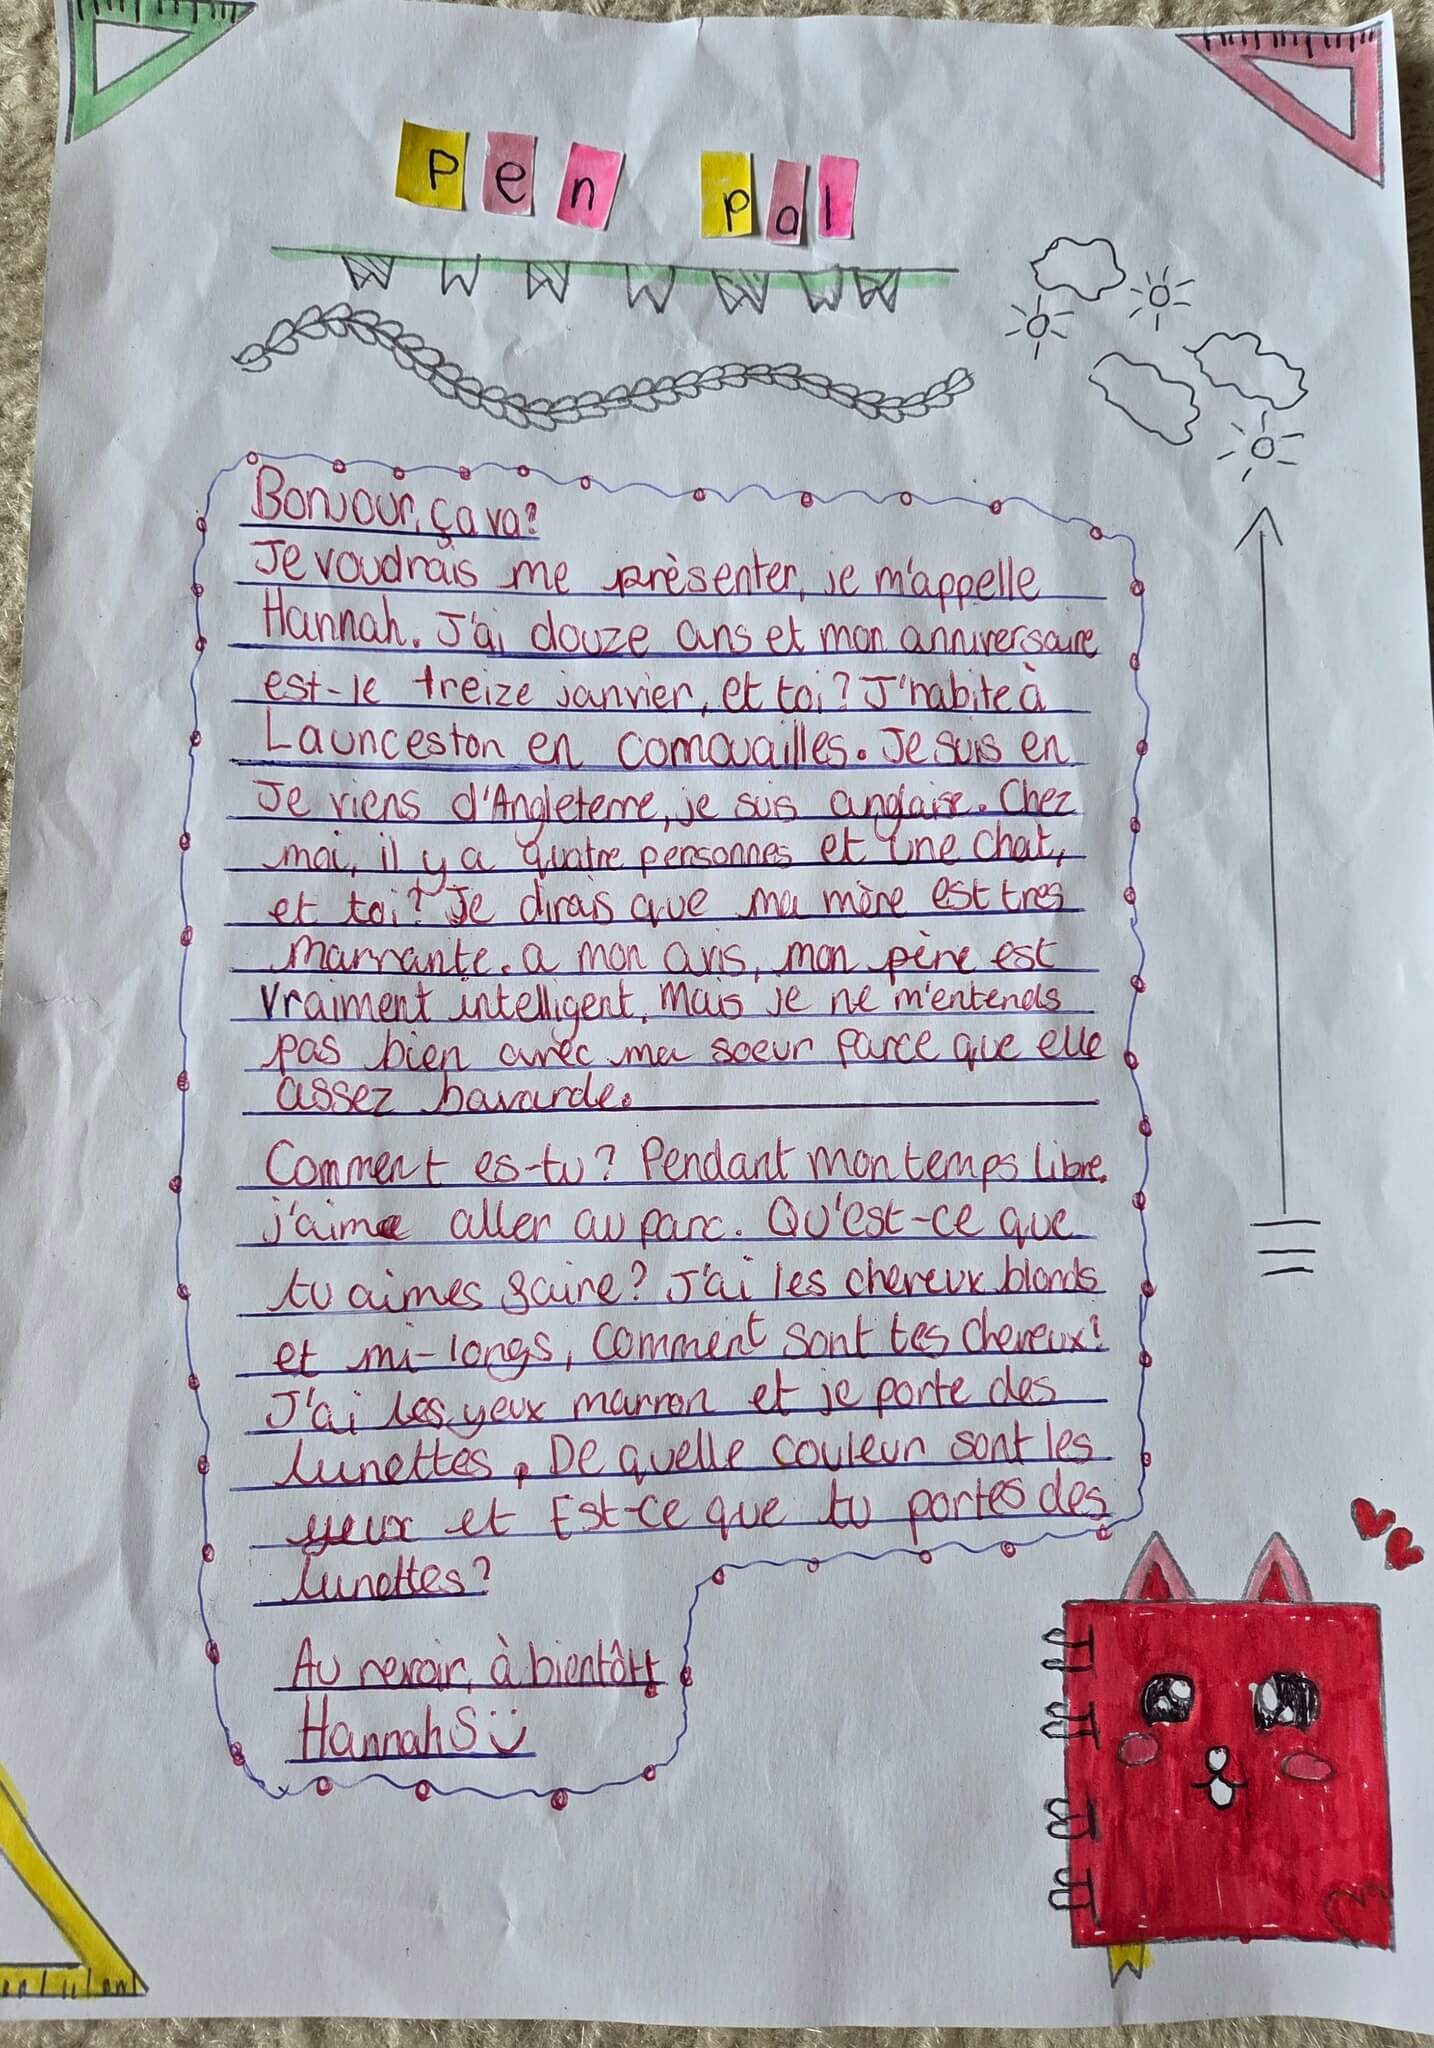 Pen pal
Bonjour, ça va?
Je voudrais me prèsenter, je m'appelle
Hannah. J'ai douze ans et mon anniversaire
est-le treize janvier, et toi? J'habite à
Launceston en cornouailles. Je suis en
Je viens d'Angleterre, je suis anglaise. Chez
moi, il y a quatre personnes et une chat,
et toi? Je dirais que ma mère est tres
marrante. a mon avis, mon père est
vraiment intelligent, mais je ne m'entends
pas bien avec ma soeur parce que elle
assez bavarde.
Comment es-tu? Pendant mon temps libre,
j'aime aller au parc. Qu'est-ce que
tu aimes faire? J'ai les cheveux blonds
et mi-longs, comment sont tes cheveux?
J'ai les yeux marron et je porte des
lunettes, De quelle couleur sont les
yeux et Est-ce que tu portes des
lunettes?
Au revoir, à bientôtt
Hannah S